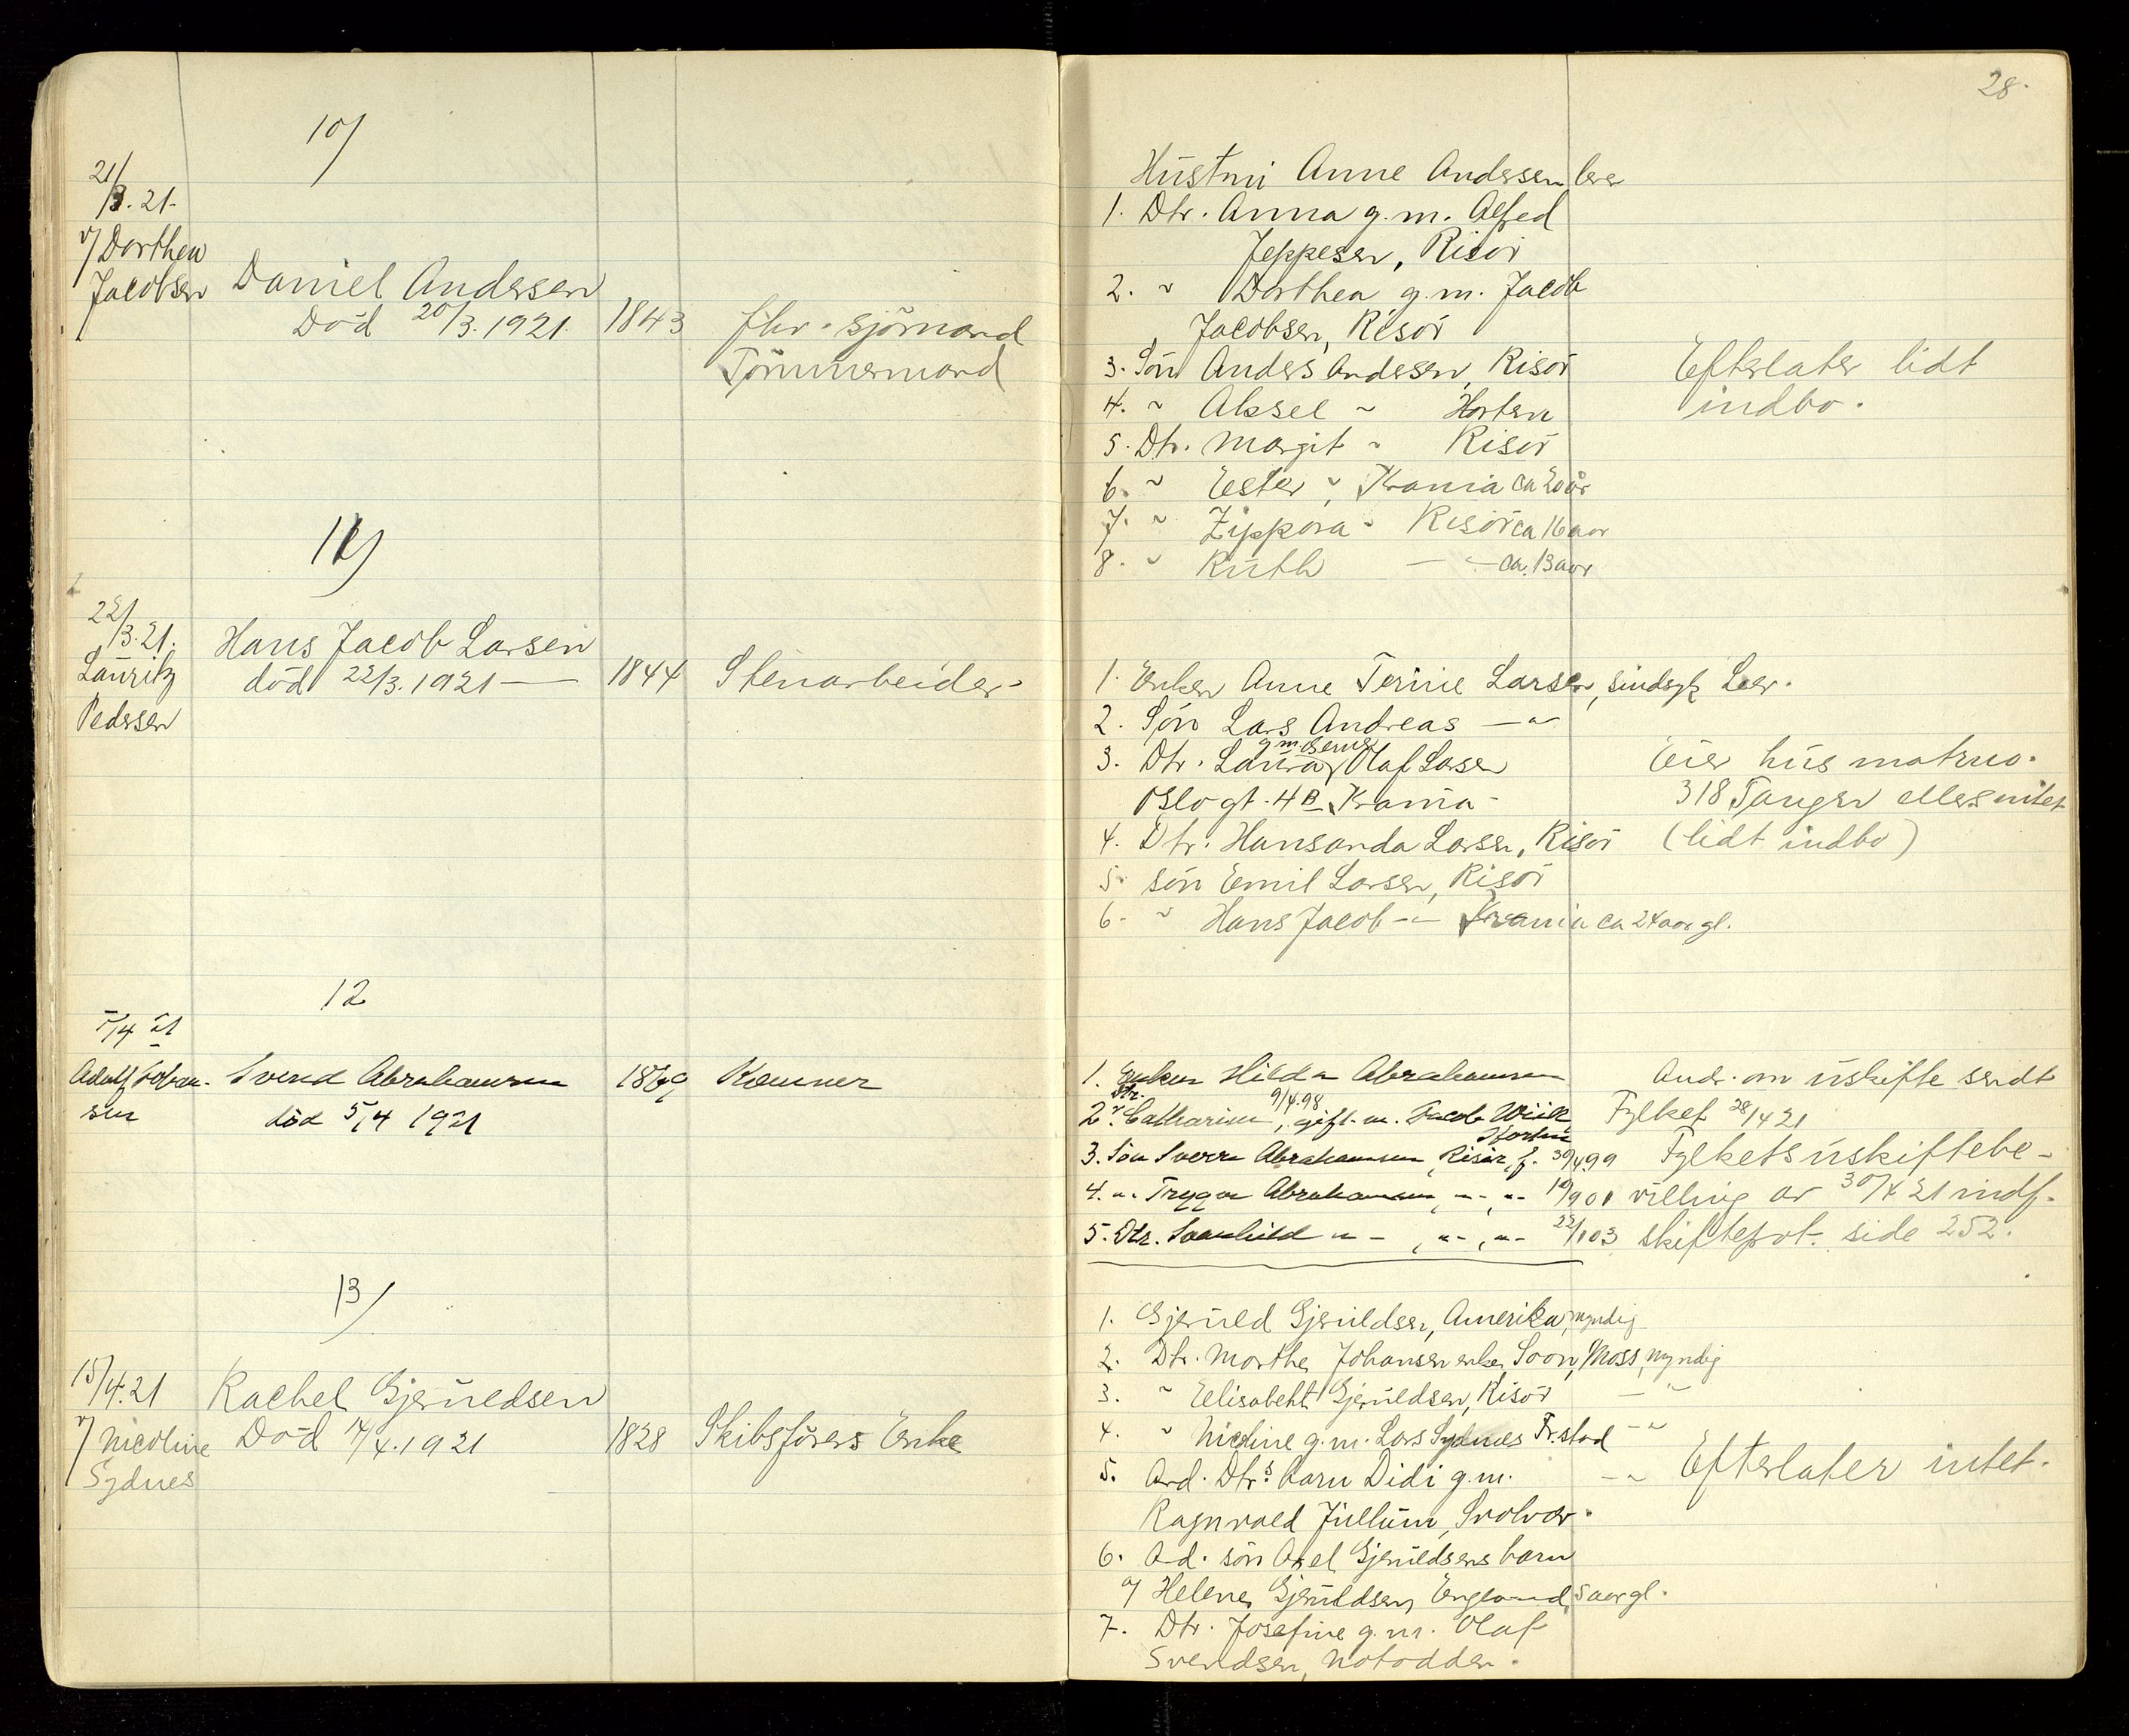 28.
10)
21/3. 21.
v/ Dorthea
Jacobsen
Daniel Andersen
Död 20/3. 1921.
1843
fhv. sjömand
Tömmermand
Hustru Anne Andersen lever
1. Dtr. Anna g. m. Alfred
Jeppesen, Risör
2. " Dorthea g. m. Jacob
Jacobsen, Risör
3. Sön Anders Andersen, Risör
4. " Aksel " Horten
5. Dtr. Margit " Risör
6. " Ester ", Krania ca 20 år
7. " Zippora " Risör ca 16 aar
8. " Ruth — " — ca. 13 aar
Efterlater lidt
indbo.
11)
22/3. 21.
Lauritz
Pedersen
Hans Jacob Larsen
död 22/3. 1921 —
1844
Stenarbeider
1. Enken Anne Terine Larsen, sindsyk Lever.
2. Sön Lars Andreas — " —
3. Dtr. Laura g. m. Olaf Larsen
Oslogt. 4 B Krania
4. Dtr. Hansanda Larsen, Risör
5. sön Emil Larsen, Risör
6. " Hans Jacob — " — Krania ca 24 aar gl.
Eier hus matrno.
318 Tangen ellers intet
(lidt indbo)
12
5/4 21
Adolf Johan-
sen
Svend Abrahamsen
död 5/4 1921
1869
Kæmner
1. Enken Hilda Abrahamsen
2. Dtr. Catharine, 9/4.98 gift. m. Jacob Wiik
Horten
3. Sön Sverre Abrahamsen, Risör, f. 30/4 99
4. " Trygve Abrahamsen, " - , " - 19/9 01
5. Dtr. Svanhild " - , " - , " - 22/1 03
Andr. om uskifte sendt
Fylket 28/4 21
Fylkets uskiftebe-
villing av 30/4 21 indf.
skifteprot. side 252.
13)
15/4. 21
v/ Nicoline
Sydnes
Rachel Gjeruldsen
Död 14/4. 1921
1828
Skibsförers Enke
1. Gjeruld Gjeruldsen, Amerika, myndig
2. Dtr. Marthe Johansen enke, Soon, Moss, myndig
3. " Elisabeht Gjeruldsen, Risör — " —
4. " Nicoline g. m. Lars Sydnes Fr.stad — " —
5. Avd. Dtrs. barn Didi g. m. — " —
Ragnvald Jullum, Svolvær.
6. Avd. sön Axel Gjeruldsens barn
a/ Helene Gjeruldsen, England, 5 aar gl.
7. Dtr. Josefine g. m. Olaf
Svendsen, Notodden.
Efterlater intet.